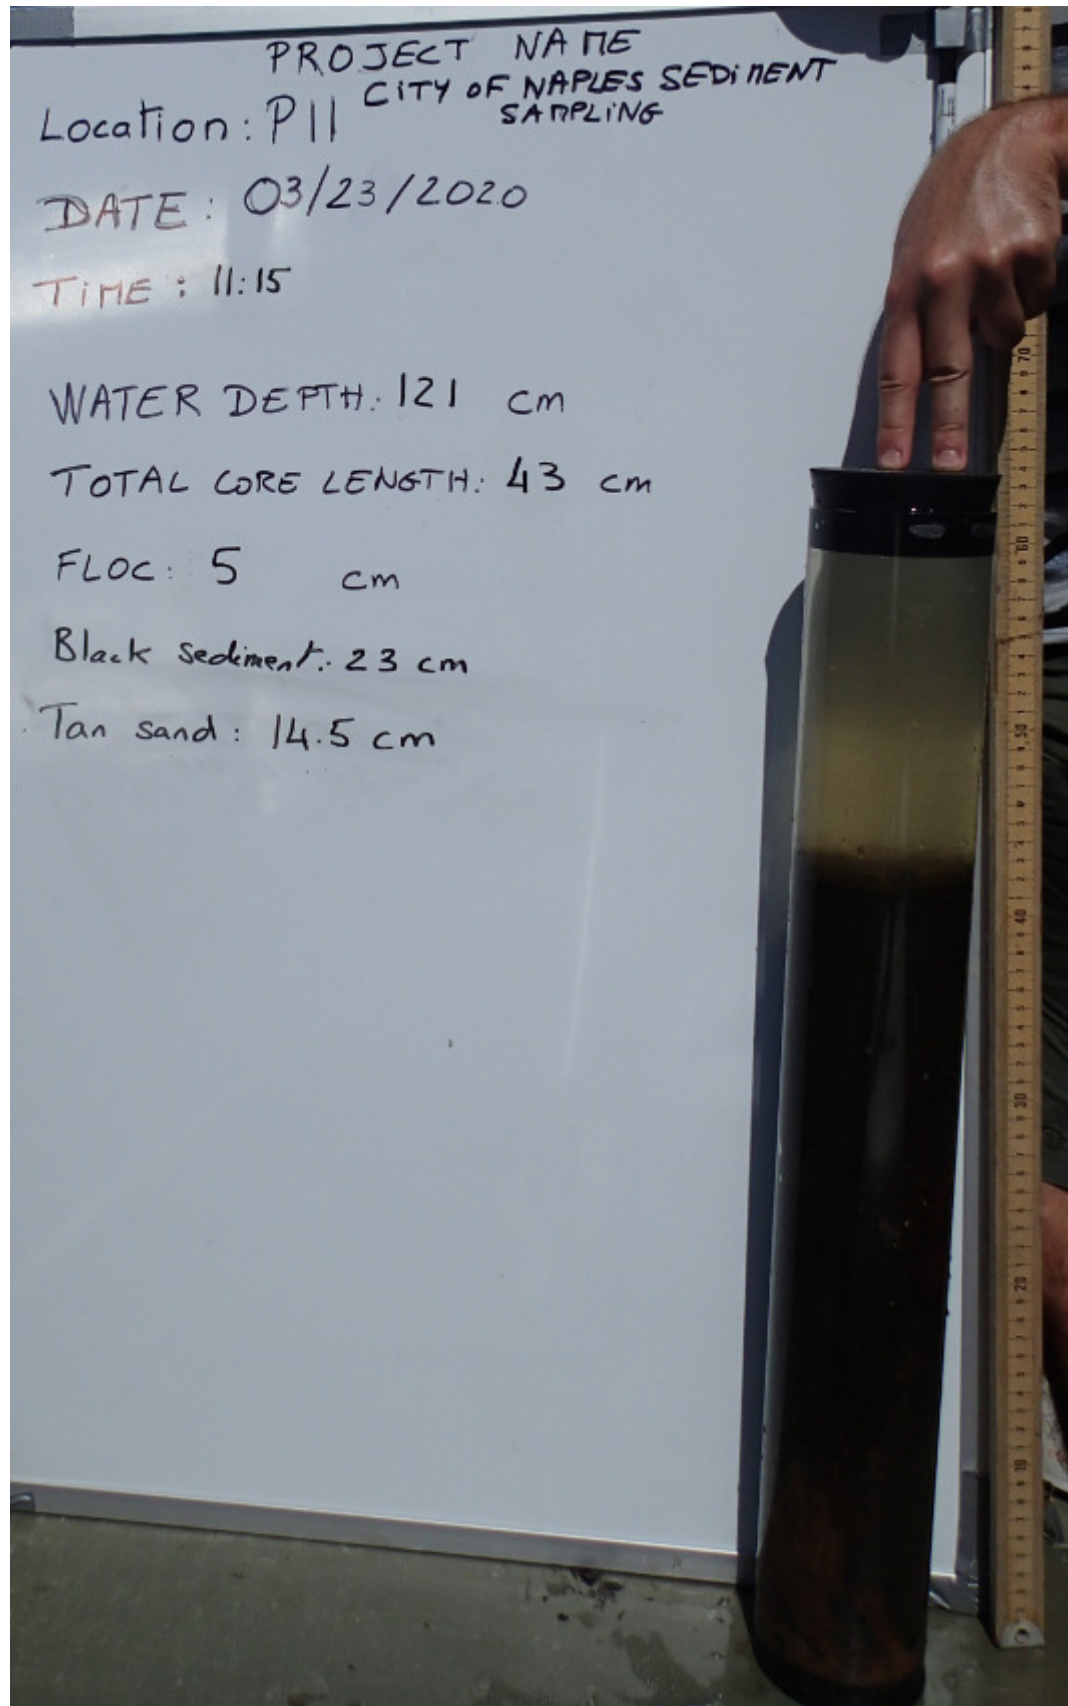 PROJECT NAME
CITY OF NAPLES SEDIMENT
SAMPLING
Location: P11
DATE: 03/23/2020
TIME: 11:15
WATER DEPTH: 121 cm
TOTAL CORE LENGTH: 43 cm
FLOC: 5 cm
Black sediment: 23 cm
Tan sand: 14.5 cm
70
60
50
40
30
20
10